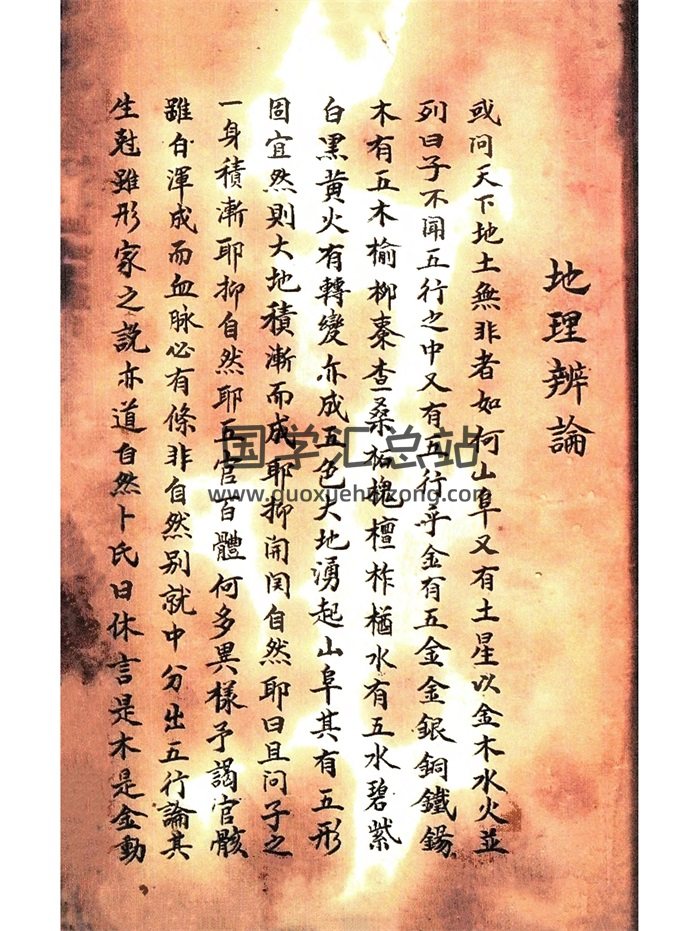 地理辨論
或問天下地土無非者如何山阜又有土星以金木水火並
列曰子不聞五行之中又有五行乎金有五金金銀銅鐵鍚
木有五木榆柳棗查桑柘槐檀柞楢水有五水碧紫
白黑黄火有轉變亦成五色大地湧起山阜其有五形
固宜然則大地積漸而成耶抑開闵自然耶曰且問子之
一身積漸耶抑自然耶五官百體何多異樣予謁官骸
雖自渾成而血脉必有條非自然别就中分出五行論其
生尅雖形家之説亦道自然卜氏曰休言是木是金動
国学汇总站
www.guoxuehuizong.com